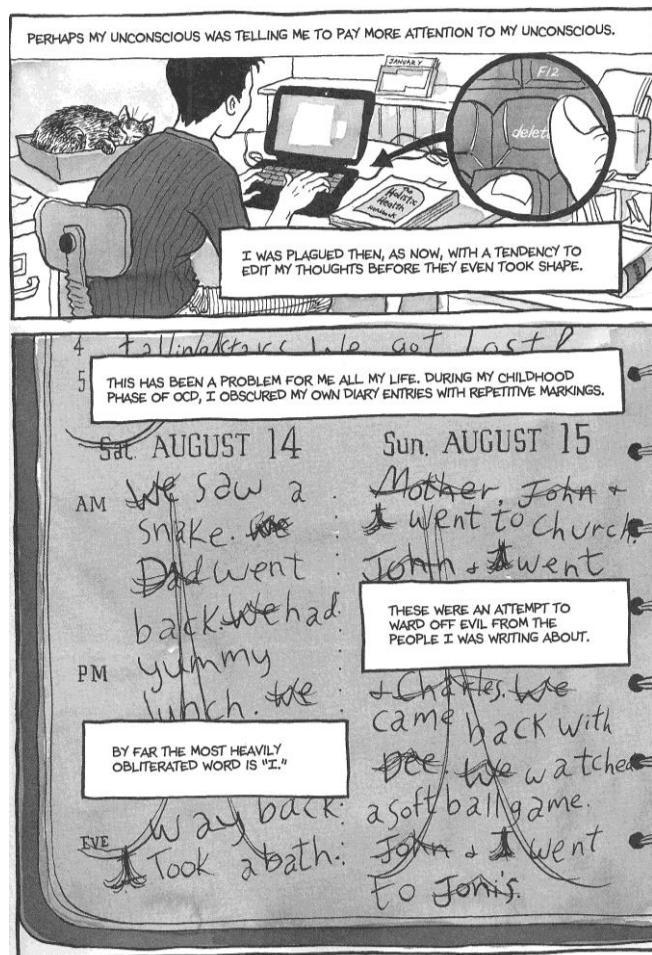 PERHAPS MY UNCONSCIOUS WAS TELLING ME TO PAY MORE ATTENTION TO MY UNCONSCIOUS.
JANUARY
F12
delete
The
Holistic
Health
Handbook
I WAS PLAGUED THEN, AS NOW, WITH A TENDENCY TO
EDIT MY THOUGHTS BEFORE THEY EVEN TOOK SHAPE.
4 we got lost
5
THIS HAS BEEN A PROBLEM FOR ME ALL MY LIFE. DURING MY CHILDHOOD
PHASE OF OCD, I OBSCURED MY OWN DIARY ENTRIES WITH REPETITIVE MARKINGS.
Sat. AUGUST 14
AM We saw a
snake. We
Dad went
back. We had
PM yummy
lunch. We
BY FAR THE MOST HEAVILY
OBLITERATED WORD IS "I."
way back.
EVE I Took a bath.
Sun. AUGUST 15
Mother, John +
I went to Church.
John + I went
THESE WERE AN ATTEMPT TO
WARD OFF EVIL FROM THE
PEOPLE I WAS WRITING ABOUT.
+ Charles. We
came back with
Dee. We watched
a softball game.
John + I went
to Joni's.